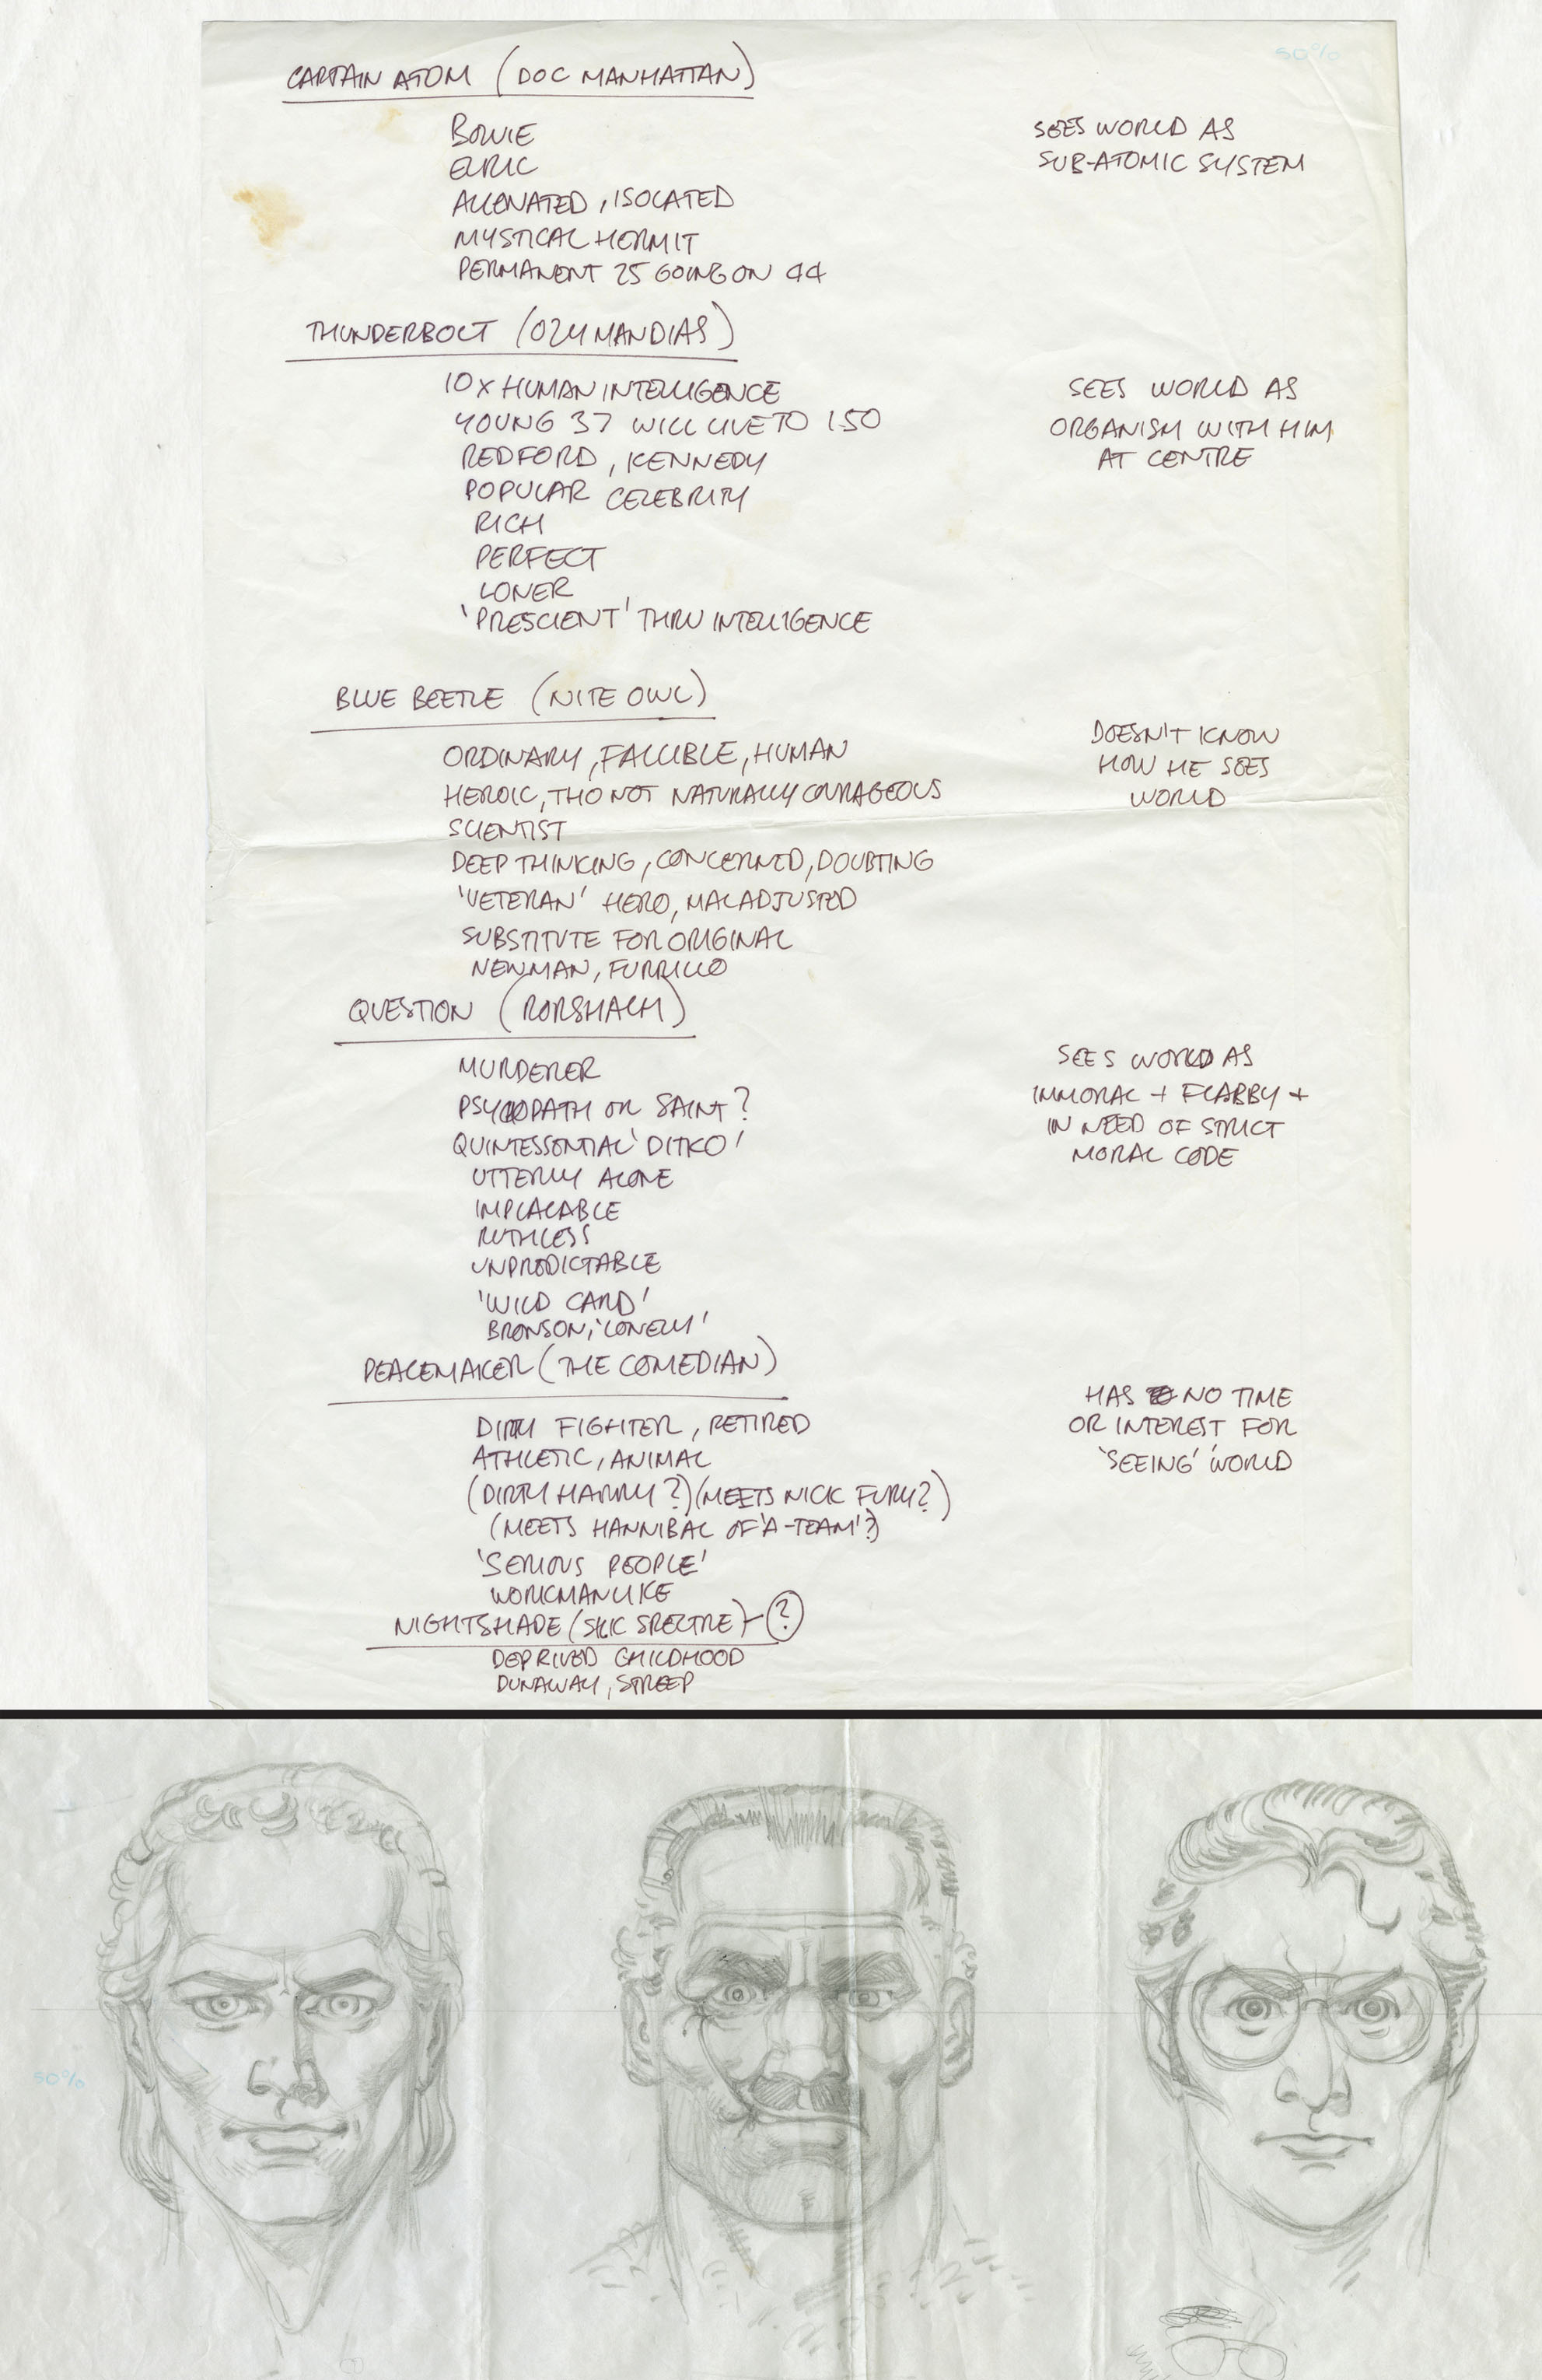 50%
CAPTAIN ATOM (DOC MANHATTAN)
BOWIE
ELRIC
ALIENATED, ISOLATED
MYSTICAL HERMIT
PERMANENT 25 GOING ON 44
SEES WORLD AS
SUB-ATOMIC SYSTEM
THUNDERBOLT (OZYMANDIAS)
10X HUMAN INTELLIGENCE
YOUNG 37 WILL LIVE TO 150
REDFORD, KENNEDY
POPULAR CELEBRITY
RICH
PERFECT
LONER
'PRESCIENT' THRU INTELLIGENCE
SEES WORLD AS
ORGANISM WITH HIM
AT CENTRE
BLUE BEETLE (NITE OWL)
ORDINARY, FALLIBLE, HUMAN
HEROIC, THO NOT NATURALLY COURAGEOUS
SCIENTIST
DEEP THINKING, CONCERNED, DOUBTING
'VETERAN' HERO, MALADJUSTED
SUBSTITUTE FOR ORIGINAL
NEWMAN, FURRILLO
DOESN'T KNOW
HOW HE SEES
WORLD
QUESTION (RORSHACH)
MURDERER
PSYCHOPATH OR SAINT?
QUINTESSENTIAL 'DITKO'
UTTERLY ALONE
IMPLACABLE
RUTHLESS
UNPREDICTABLE
'WILD CARD'
BRONSON, 'LONELY'
SEES WORLD AS
IMMORAL + FLABBY +
IN NEED OF STRICT
MORAL CODE
PEACEMAKER (THE COMEDIAN)
DIRTY FIGHTER, RETIRED
ATHLETIC, ANIMAL
(DIRTY HARRY?) (MEETS NICK FURY?)
(MEETS HANNIBAL OF 'A-TEAM'?)
'SERIOUS PEOPLE'
WORKMANLIKE
HAS NO TIME
OR INTEREST FOR
'SEEING' WORLD
NIGHTSHADE (SILK SPECTRE) - ?
DEPRIVED CHILDHOOD
DUNAWAY, STREEP
50%